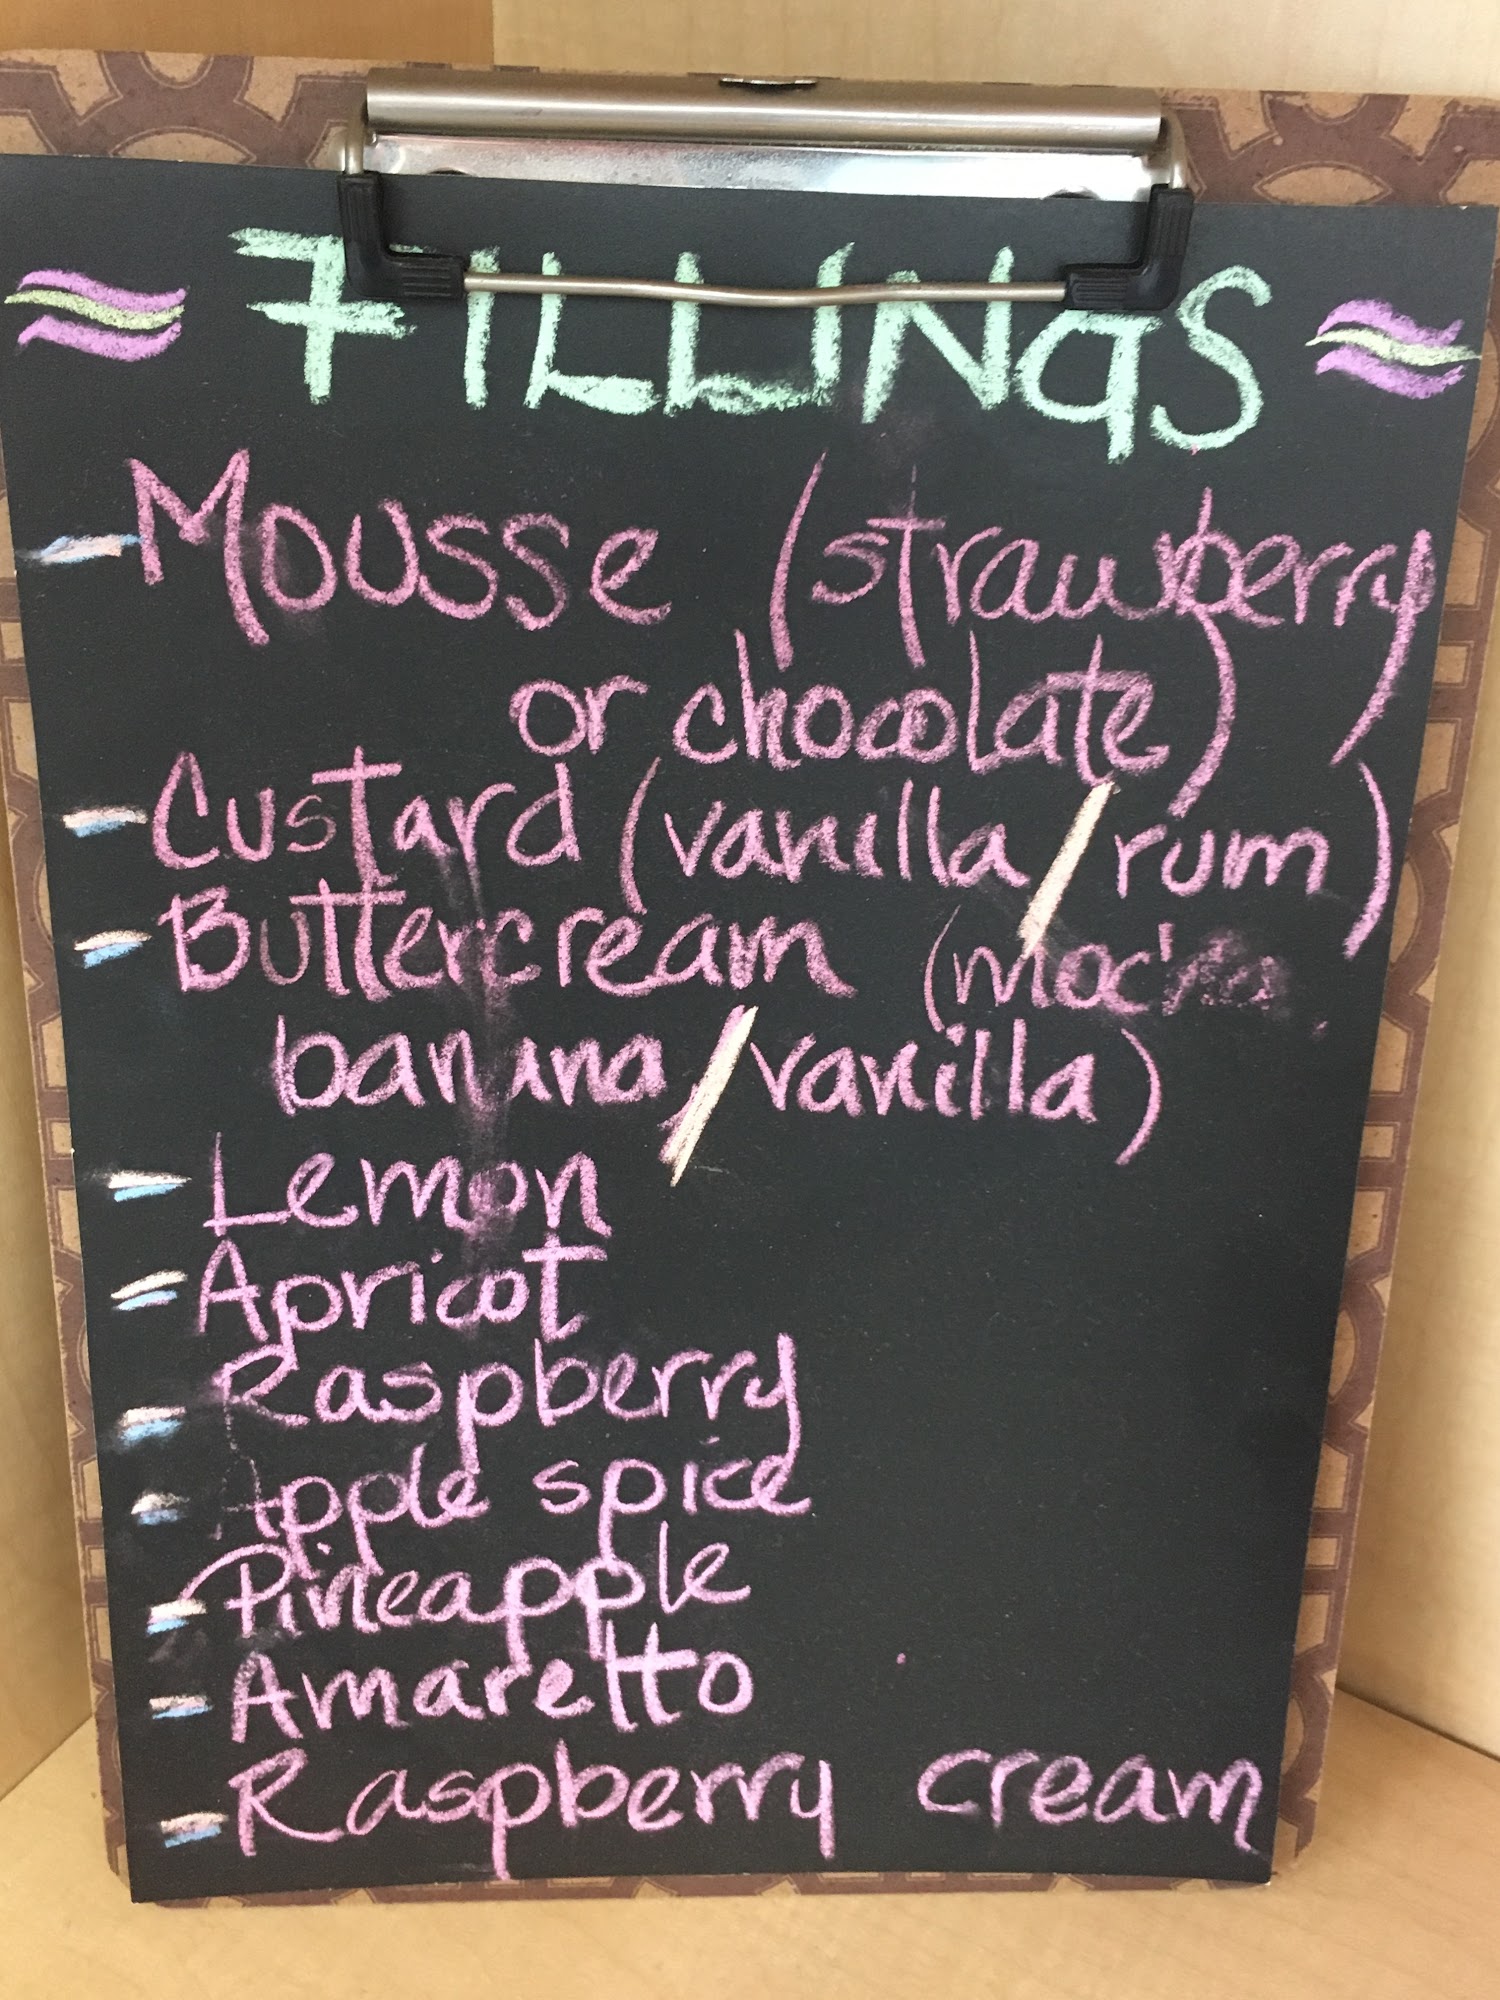 FILLINGS
- Mousse (strawberry
or chocolate)
- Custard (vanilla/rum)
- Buttercream (mocha
banana/vanilla)
- Lemon
- Apricot
- Raspberry
- Apple spice
- Pineapple
- Amaretto
- Raspberry cream